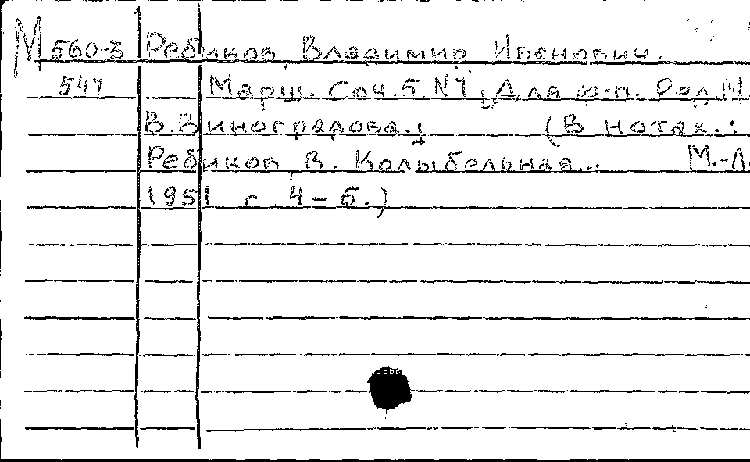 М 560-3 Ребиков, Владимир Иванович.
547 Марш. Соч. 5 N 1. Для ф-п. Ред. Н.
В. Виноградова.; (В нотах.:
Ребиков В. Колыбельная.. М.-Л.
1951 с 4-5.)